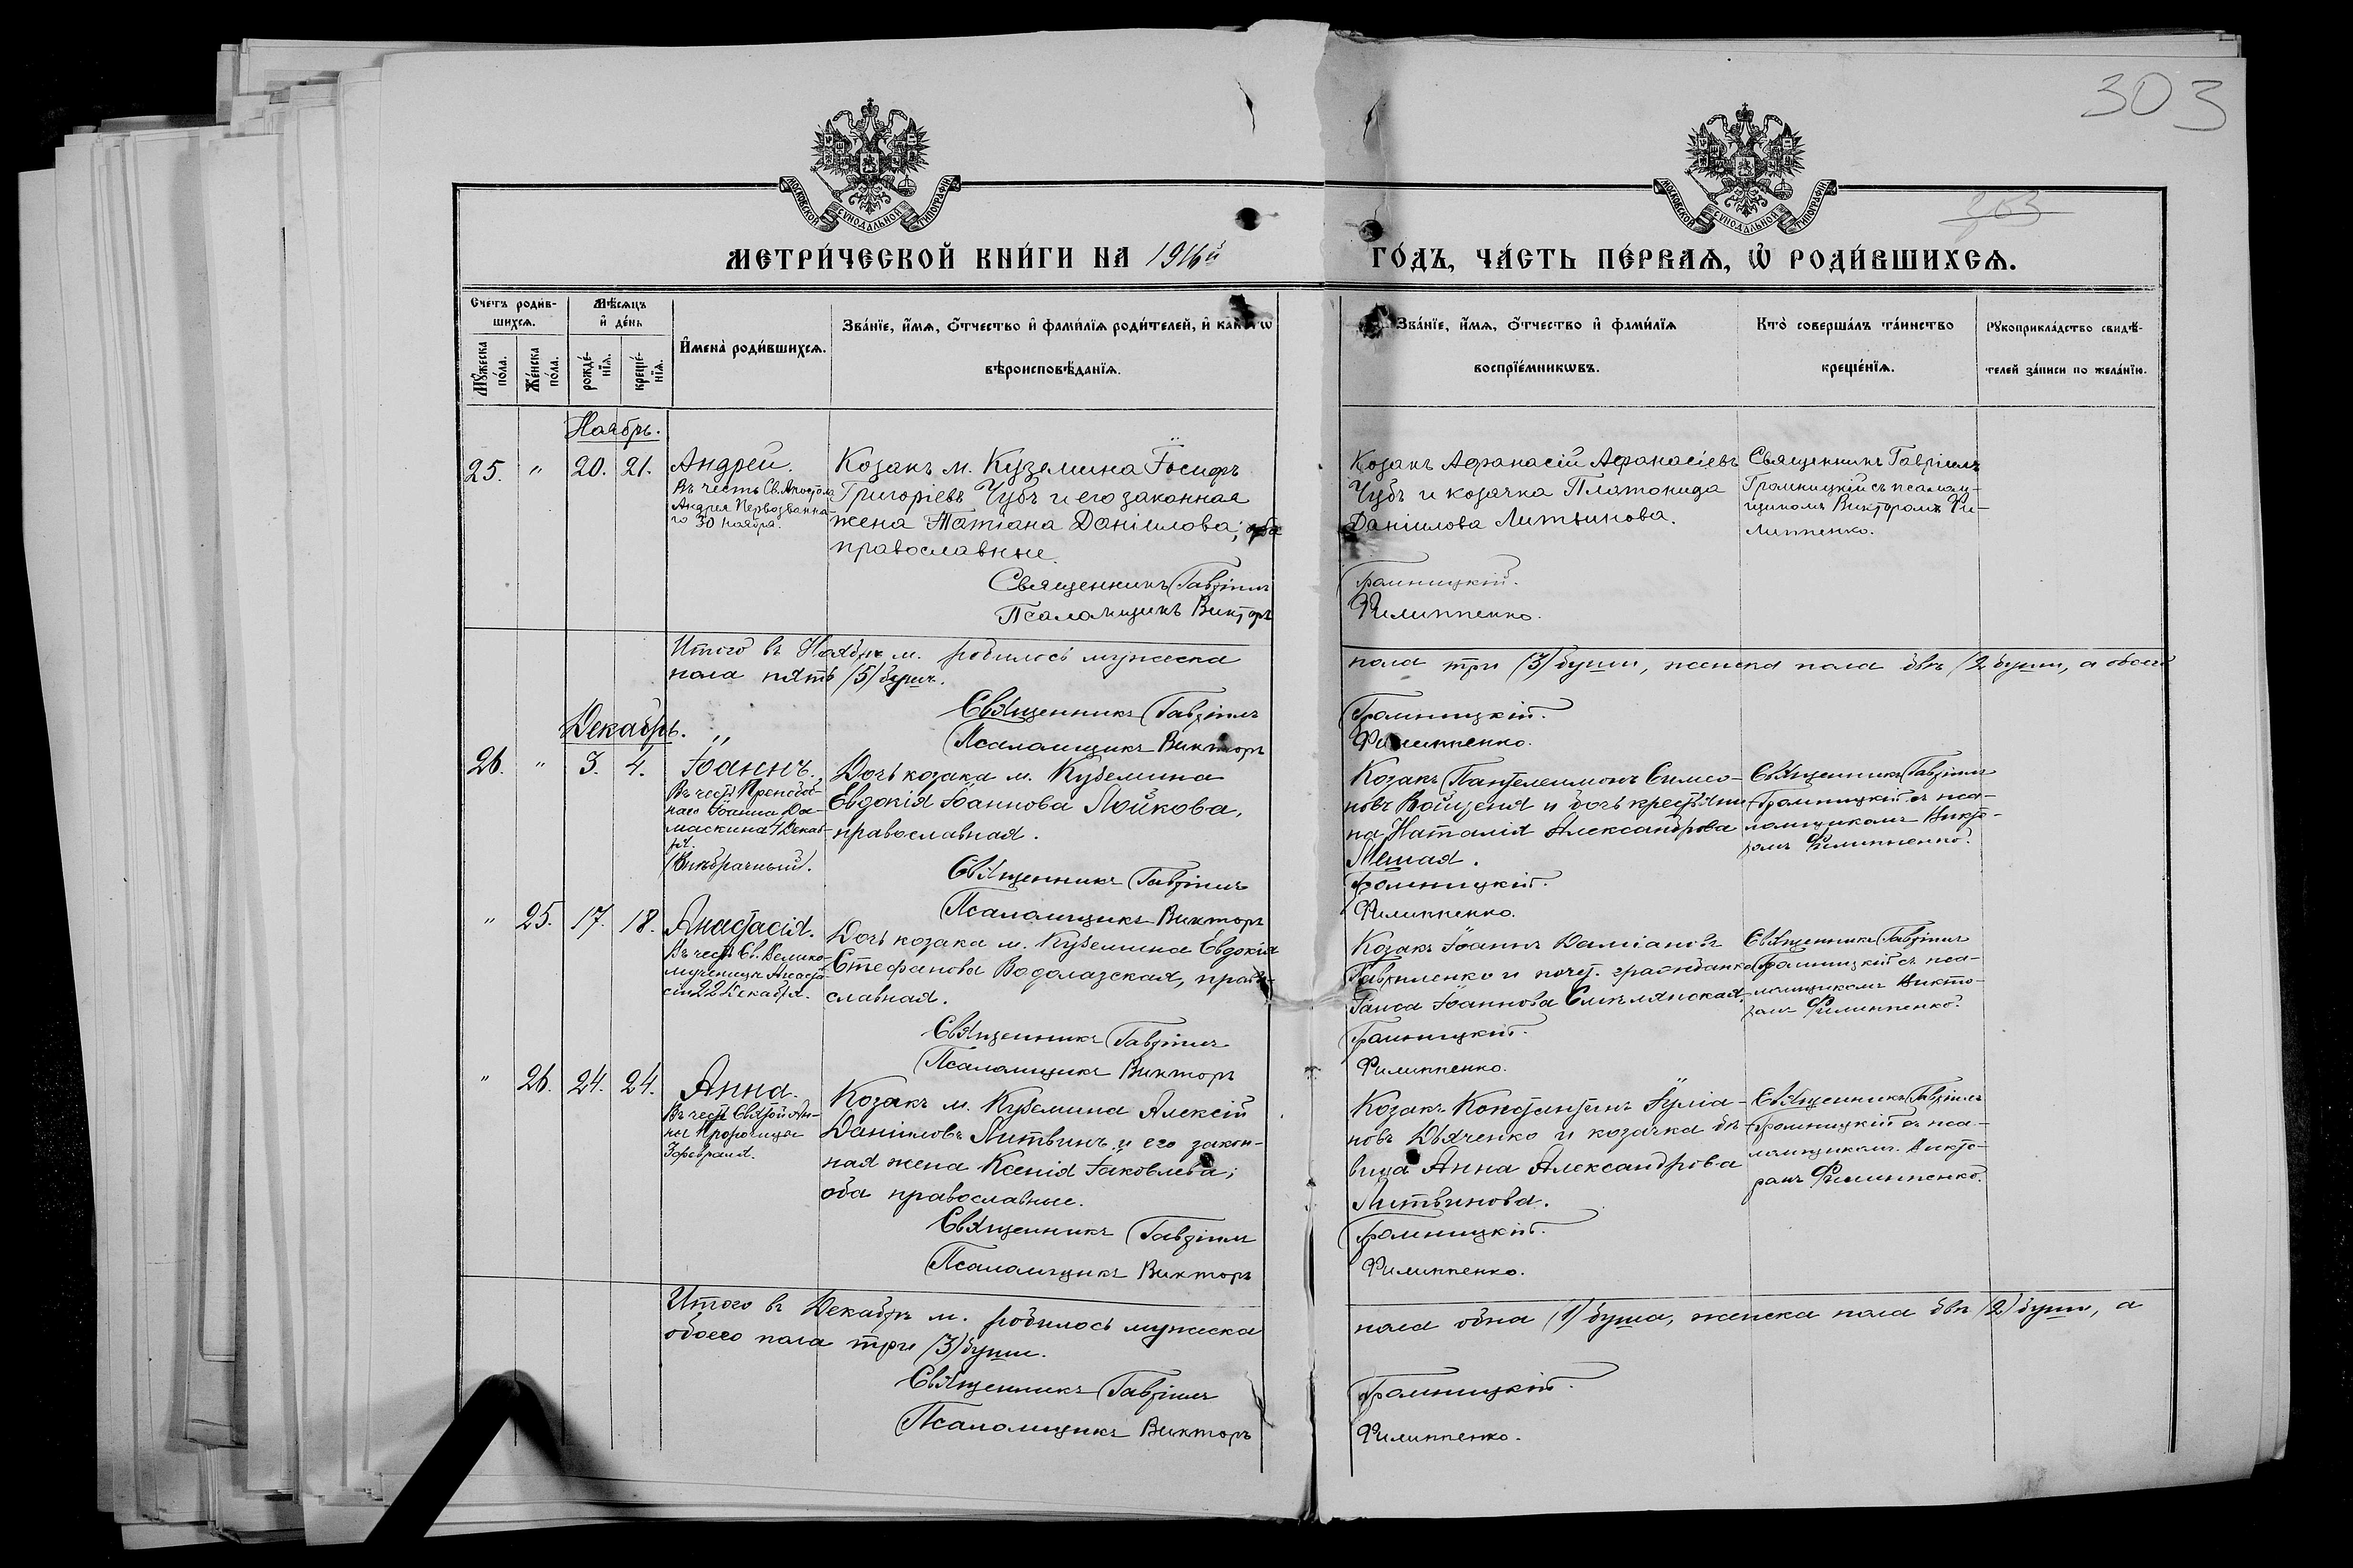 303
303
МОСКОВСКОЙ СУНОДАЛЬНОЙ ТИПОГРАФІИ
МОСКОВСКОЙ СУНОДАЛЬНОЙ ТИПОГРАФІИ
МЕТРИ́ЧЕСКОЙ КНИ́ГИ НА 1916й
ГО́ДЪ, ЧА́СТЬ ПЕ́РВАѦ, Ѡ҆ РОДИ́ВШИХСѦ.
Сче́тъ роди́в-
шихсѧ.
Мѣ́сѧцъ
и҆ де́нь
Мꙋ́жеска
по́ла.
Же́нска
по́ла.
рожде́-
нїѧ.
креще́-
нїѧ.
И҆мена̀ роди́вшихсѧ.
Зва́нїе, и҆́мѧ, ѻ҆́тчество и҆ фами́лїѧ роди́телей, и҆ како́гѡ
вѣроисповѣ́данїѧ.
Зва́нїе, и҆́мѧ, ѻ҆́тчество и҆ фами́лїѧ
воспрїе́мникѡвъ.
Кто̀ соверша́лъ та́инство
креще́нїѧ.
Рꙋкоприкла́дство свидѣ́-
телей за́писи по жела́нїю.
Ноябрь.
25. " 20. 21.
Андрей.
Въ честь Св. Апостола
Андрея Первозванна-
го 30 ноября.
Козакъ м. Куземина Іосифъ
Григоріевъ Чубъ и его законная
жена Татіана Даніилова; оба
православные.
Священникъ Гавріилъ
Псаломщикъ Викторъ
Козакъ Афанасій Афанасіевъ
Чубъ и козачка Платонида
Даніилова Литвинова.
Громницкій.
Филиппенко.
Священникъ Гавріилъ
Громницкій съ псалом-
щикомъ Викторомъ Фи-
липпенко.
Итого въ Ноябрѣ м. родилось мужеска
пола пять (5) душъ.
пола три (3) души, женска пола двѣ (2 души, а обоего
Священникъ Гавріилъ
Псаломщикъ Викторъ
Громницкій.
Филиппенко.
Декабрь.
26. " 3. 4.
Іоаннъ.
Въ честь Преподоб-
наго Іоанна Да-
маскина 4 Декаб-
ря.
(Внѣбрачный).
Дочь козака м. Куземина
Евдокія Іоаннова Лойкова,
православная.
Священникъ Гавріилъ
Псаломщикъ Викторъ
Козакъ Пантелеимонъ Симео-
новъ Войценя и дочь крестьяни-
на Наталія Александрова
Громницкій.
Филиппенко.
Священникъ Гавріилъ
Громницкій съ пса-
ломщикомъ Викто-
ромъ Филиппенко.
" 25. 17. 18.
Анастасія.
Въ честь Св. Велико-
мученицы Анаста-
сіи 22 Декабря.
Дочь козака м. Куземина Евдокія
Стефанова Водолазская, право-
славная.
Священникъ Гавріилъ
Псаломщикъ Викторъ
Козакъ Іоаннъ Даміановъ
Гавриленко и почет. гражданка
Таиса Іоаннова Смѣлянская.
Громницкій.
Филиппенко.
Священникъ Гавріилъ
Громницкій съ пса-
ломщикомъ Викто-
ромъ Филиппенко.
" 26. 24. 24.
Анна.
Въ честь Святой Ан-
ны Пророчицы
3 февраля.
Козакъ м. Куземина Алексій
Даніиловъ Литвинъ и его закон-
ная жена Ксенія Іаковлева;
оба православные.
Священникъ Гавріилъ
Псаломщикъ Викторъ
Козакъ Константинъ Іуліа-
новъ Дьяченко и козачка дѣ-
вица Анна Александрова
Литвинова.
Громницкій.
Филиппенко.
Священникъ Гавріилъ
Громницкій съ пса-
ломщикомъ Викто-
ромъ Филиппенко.
Итого въ Декабрѣ м. родилось мужеска
обоего пола три (3) души.
пола одна (1) душа, женска пола двѣ (2) души, а
Священникъ Гавріилъ
Псаломщикъ Викторъ
Громницкій.
Филиппенко.